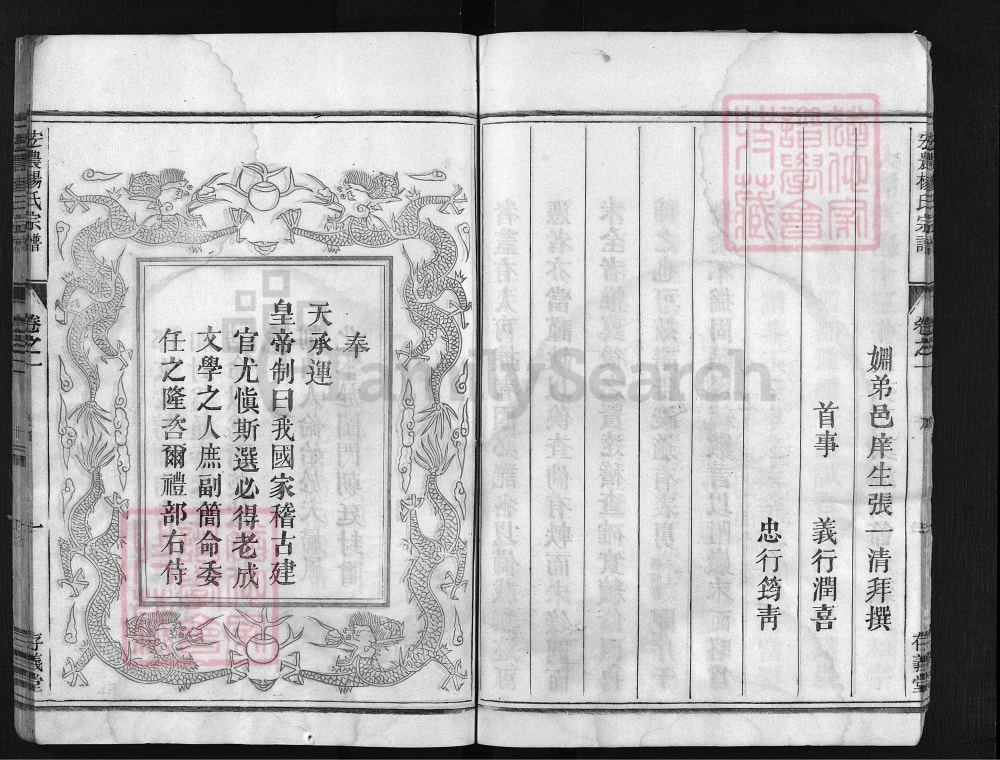 姻弟邑庠生張一清拜撰
首事 義行潤喜
忠行筠青
宏農楊氏宗譜
卷之一
存義堂
奉
天承運
皇帝制曰我國家稽古建
官尤愼斯選必得老成
文學之人庶副簡命委
任之隆咨爾禮部右侍
宏農楊氏宗譜
卷之一
一
存義堂
FamilySearch